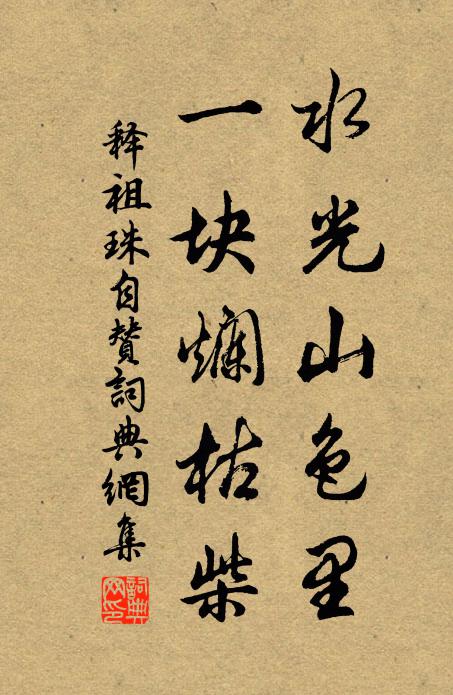 水光山色里
一块爛枯柴
释祖珠自赞詞典網集
詞典網印